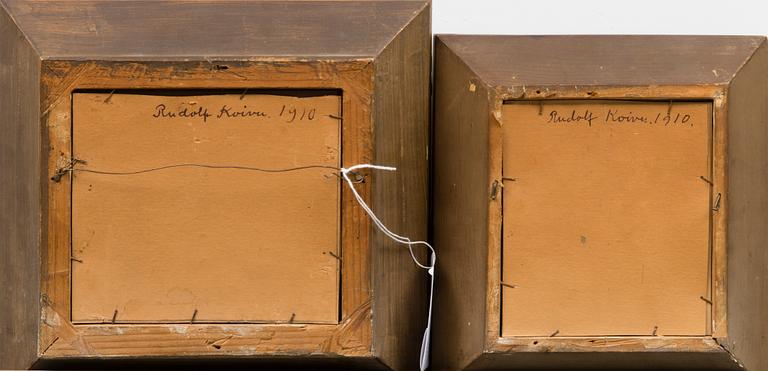 Rudolf Koivu. 1910
Rudolf Koivu. 1910.